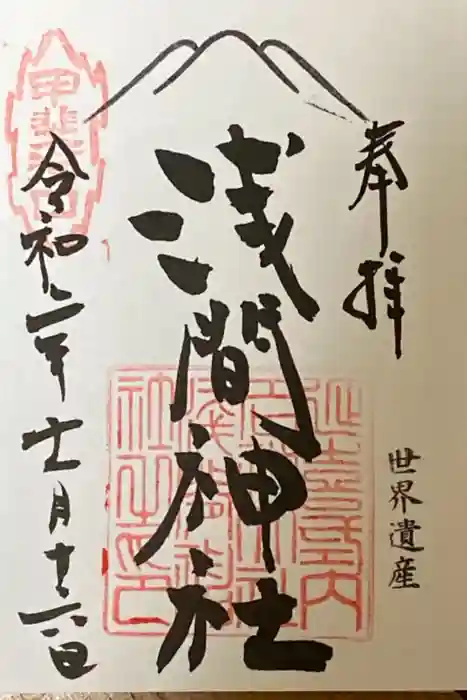 奉拝
世界遺産
浅間神社
令和二年十一月十
甲斐
延喜式内